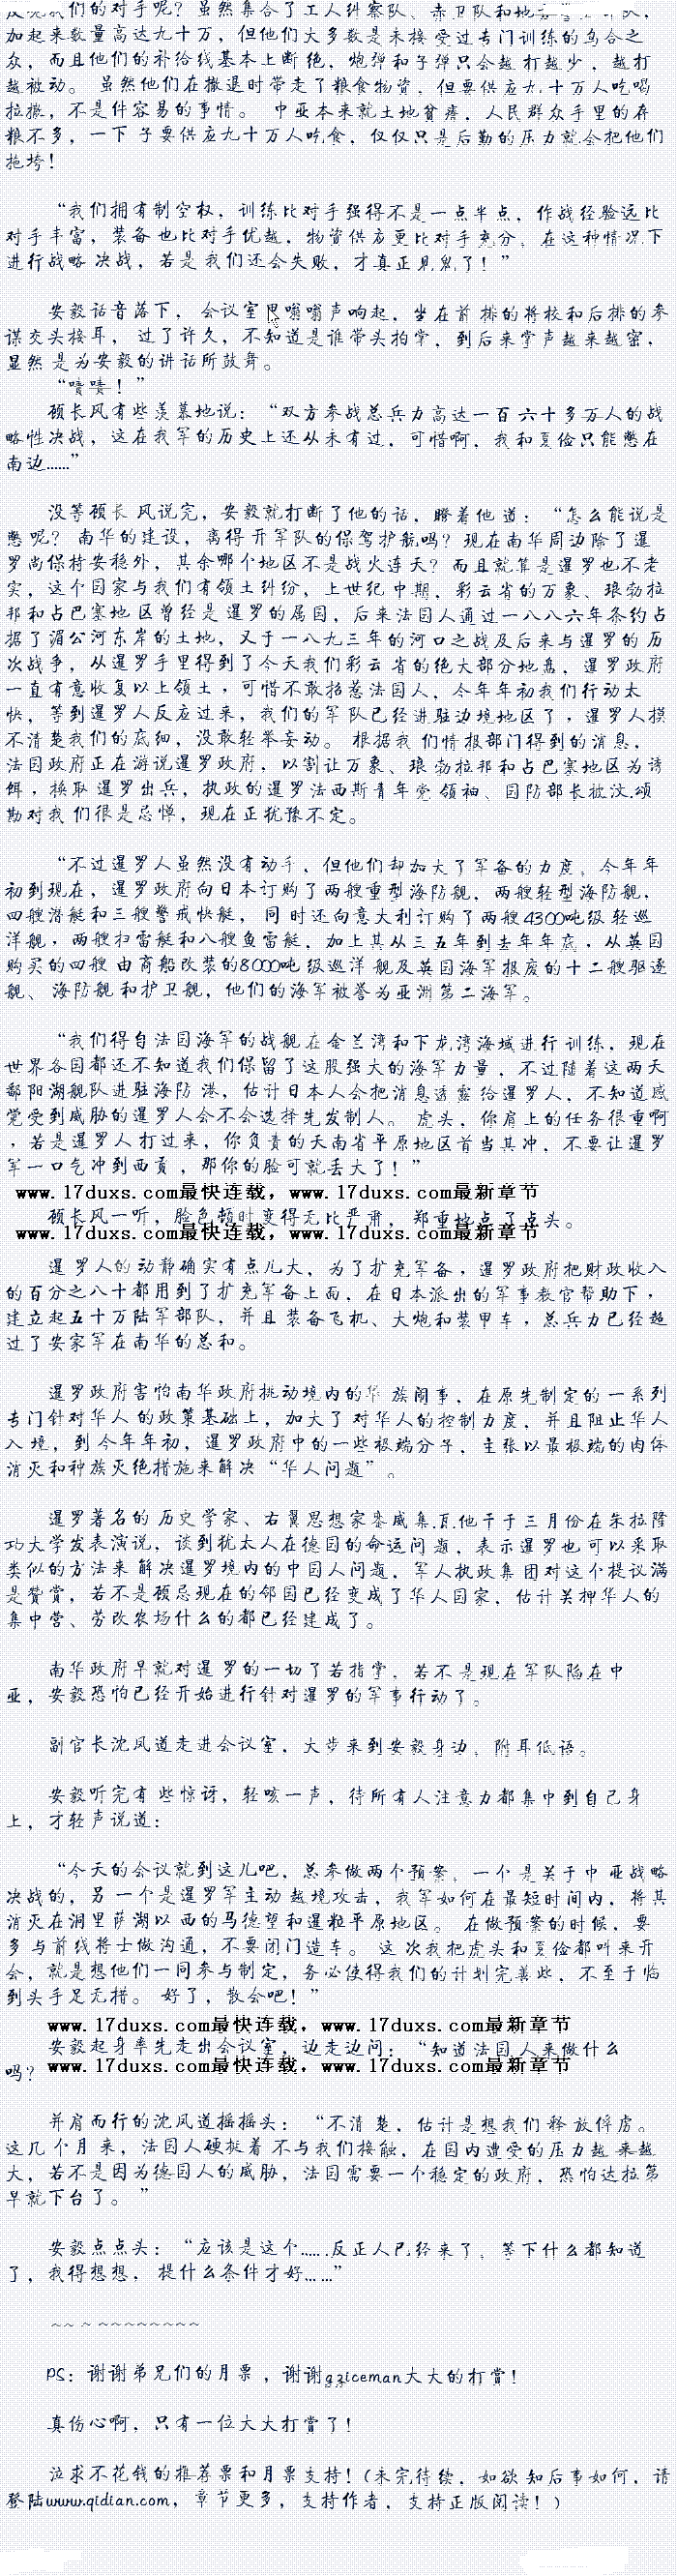 们的对手呢？虽然集合了工人纠察队、赤卫队和地
加起来数量高达九十万，但他们大多数是未接受过专门训练的乌合之
众，而且他们的补给线基本上断绝，炮弹和子弹只会越打越少，越打
越被动。虽然他们在撤退时带走了粮食物资，但要供应九十万人吃喝
拉撒，不是件容易的事情。中亚本来就土地贫瘠，人民群众手里的存
粮不多，一下子要供应九十万人吃食，仅仅只是后勤的压力就会把他们
拖垮！
“我们拥有制空权，训练比对手强得不是一点半点，作战经验远比
对手丰富，装备也比对手优越，物资供应更比对手充分。在这种情况下
进行战略决战，若是我们还会失败，才真正见鬼了！”
安毅话音落下，会议室里嗡嗡声响起，坐在前排的将校和后排的参
谋交头接耳，过了许久，不知道是谁带头拍掌，到后来掌声越来越密，
显然是为安毅的讲话所鼓舞。
“啧啧！”
顾长风有些羡慕地说：“双方参战总兵力高达一百六十多万人的战
略性决战，这在我军的历史上还从未有过，可惜啊，我和夏俭只能憋在
南边……”
没等顾长风说完，安毅就打断了他的话，瞪着他道：“怎么能说是
憋呢？南华的建设，离得开军队的保驾护航吗？现在南华周边除了暹
罗尚保持安稳外，其余哪个地区不是战火连天？而且就算是暹罗也不老
实，这个国家与我们有领土纠纷，上世纪中期，彩云省的万象、琅勃拉
邦和占巴塞地区曾经是暹罗的属国，后来法国人通过一八八六年条约占
据了湄公河东岸的土地，又于一八九三年的河口之战及后来与暹罗的历
次战争，从暹罗手里得到了今天我们彩云省的绝大部分地盘，暹罗政府
一直有意收复以上领土，可惜不敢招惹法国人，今年年初我们行动太
快，等到暹罗人反应过来，我们的军队已经进驻边境地区了，暹罗人摸
不清楚我们的底细，没敢轻举妄动。根据我们情报部门得到的消息，
法国政府正在游说暹罗政府，以割让万象、琅勃拉邦和占巴塞地区为诱
饵，换取暹罗出兵，执政的暹罗法西斯青年党领袖、国防部长披汶.颂
勘对我们很是忌惮，现在正犹豫不定。
“不过暹罗人虽然没有动手，但他们却加大了军备的力度。今年年
初到现在，暹罗政府向日本订购了两艘重型海防舰，两艘轻型海防舰，
四艘潜艇和三艘警戒快艇，同时还向意大利订购了两艘4300吨级轻巡
洋舰，两艘扫雷艇和八艘鱼雷艇，加上其从三五年到去年年底，从英国
购买的四艘由商船改装的8000吨级巡洋舰及英国海军报废的十二艘驱逐
舰、海防舰和护卫舰，他们的海军被誉为亚洲第二海军。
“我们得自法国海军的战舰在金兰湾和下龙湾海域进行训练，现在
世界各国都还不知道我们保留了这股强大的海军力量，不过随着这两天
鄱阳湖舰队进驻海防港，估计日本人会把消息透露给暹罗人，不知道感
觉受到威胁的暹罗人会不会选择先发制人。虎头，你肩上的任务很重啊
，若是暹罗人打过来，你负责的天南省平原地区首当其冲，不要让暹罗
军一口气冲到西贡，那你的脸可就丢大了！”
www.17duxs.com最快连载，www.17duxs.com最新章节
顾长风一听，脸色顿时变得无比严肃，郑重地点了点头。
www.17duxs.com最快连载，www.17duxs.com最新章节
暹罗人的动静确实有点儿大，为了扩充军备，暹罗政府把财政收入
的百分之八十都用到了扩充军备上面，在日本派出的军事教官帮助下，
建立起五十万陆军部队，并且装备飞机、大炮和装甲车，总兵力已经超
过了安家军在南华的总和。
暹罗政府害怕南华政府挑动境内的华族闹事，在原先制定的一系列
专门针对华人的政策基础上，加大了对华人的控制力度，并且阻止华人
入境，到今年年初，暹罗政府中的一些极端分子，主张以最极端的肉体
消灭和种族灭绝措施来解决“华人问题”。
暹罗著名的历史学家、右翼思想家銮威集.瓦他干于三月份在朱拉隆
功大学发表演说，谈到犹太人在德国的命运问题，表示暹罗也可以采取
类似的方法来解决暹罗境内的中国人问题，军人执政集团对这个提议满
是赞赏，若不是顾忌现在的邻国已经变成了华人国家，估计关押华人的
集中营、劳改农场什么的都已经建成了。
南华政府早就对暹罗的一切了若指掌，若不是现在军队陷在中
亚，安毅恐怕已经开始进行针对暹罗的军事行动了。
副官长沈凤道走进会议室，大步来到安毅身边，附耳低语。
安毅听完有些惊讶，轻咳一声，待所有人注意力都集中到自己身
上，才轻声说道：
“今天的会议就到这儿吧，总参做两个预案，一个是关于中亚战略
决战的，另一个是暹罗军主动越境攻击，我军如何在最短时间内，将其
消灭在洞里萨湖以西的马德望和暹粒平原地区。在做预案的时候，要
多与前线将士做沟通，不要闭门造车。这次我把虎头和夏俭都叫来开
会，就是想他们一同参与制定，务必使得我们的计划完善些，不至于临
到头手足无措。好了，散会吧！”
www.17duxs.com最快连载，www.17duxs.com最新章节
安毅起身率先走出会议室，边走边问：“知道法国人来做什么
www.17duxs.com最快连载，www.17duxs.com最新章节
吗？
并肩而行的沈凤道摇摇头：“不清楚，估计是想我们释放俘虏。
这几个月来，法国人硬挺着不与我们接触，在国内遭受的压力越来越
大，若不是因为德国人的威胁，法国需要一个稳定的政府，恐怕达拉第
早就下台了。”
安毅点点头：“应该是这个……反正人已经来了，等下什么都知道
了，我得想想，提什么条件才好……”
～～～～～～～～～～
PS：谢谢弟兄们的月票，谢谢gziceman大大的打赏！
真伤心啊，只有一位大大打赏了！
泣求不花钱的推荐票和月票支持！（未完待续，如欲知后事如何，请
登陆www.qidian.com，章节更多，支持作者，支持正版阅读！）